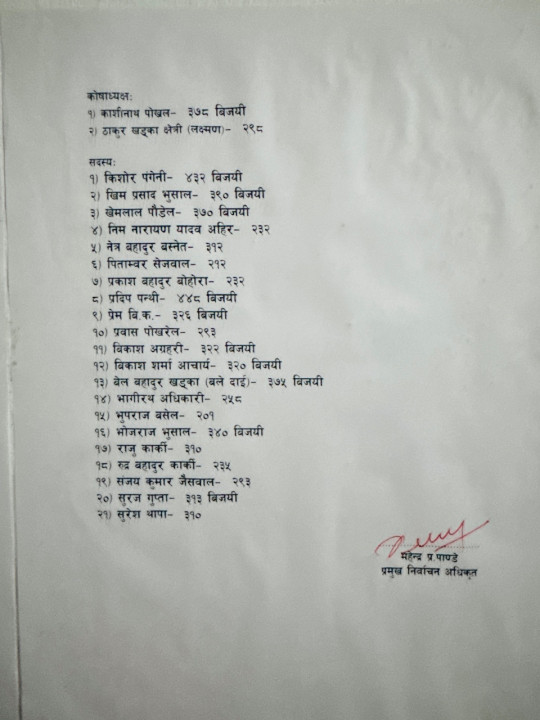 कोषाध्यक्ष:
१) काशीनाथ पोखल- ३७८ बिजयी
२) ठाकुर खड्का क्षेत्री (लक्ष्मण)- २९८
सदस्य:
१) किशोर पंगेनी- ४३२ बिजयी
२) खिम प्रसाद भुसाल- ३९० बिजयी
३) खेमलाल पौडेल- ३७० बिजयी
४) निम नारायण यादव अहिर- २३२
५) नेत्र बहादुर बस्नेत- ३१२
६) पिताम्वर सेजवाल- २१२
७) प्रकाश बहादुर बोहोरा- २३२
८) प्रदिप पन्थी- ४४८ बिजयी
९) प्रेम बि.क.- ३२६ बिजयी
१०) प्रवास पोखरेल- २९३
११) बिकाश अग्रहरी- ३२२ बिजयी
१२) बिकाश शर्मा आचार्य- ३२० बिजयी
१३) बेल बहादुर खड्का (बले दाई)- ३७५ बिजयी
१४) भागीरथ अधिकारी- २५८
१५) भुपराज बसेल- २०१
१६) भोजराज भुसाल- ३४० बिजयी
१७) राजु कार्की- ३१०
१८) रुद्र बहादुर कार्की- २३५
१९) संजय कुमार जैसवाल- २९३
२०) सुरज गुप्ता- ३१३ बिजयी
२१) सुरेश थापा- ३१०
महेन्द्र प्र.पाण्डे
प्रमुख निर्वाचन अधिकृत